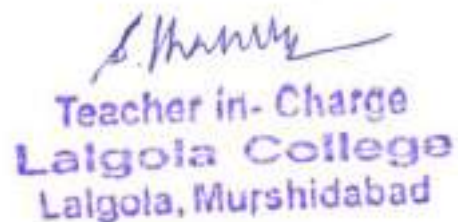 Teacher in- Charge
Lalgola College
Lalgola, Murshidabad